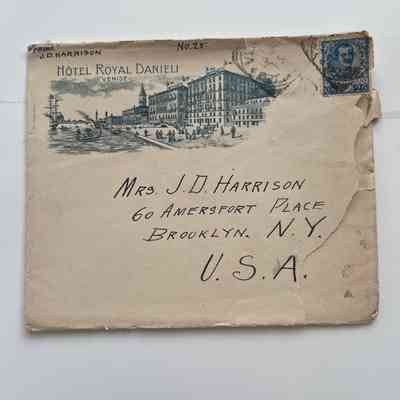 FROM
J.D. HARRISON
No. 25
HÔTEL ROYAL DANIELI
VENISE
MRS. J. D. HARRISON
60 AMERSFORT PLACE
BROOKLYN. N. Y.
U. S. A.